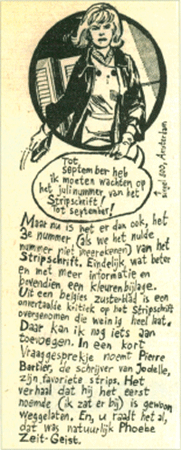 Tot
september heb
ik moeten wachten op
het julinummer van het
Stripschrift!
Tot september!
singel 500, Amsterdam
Maar nu is het er dan ook, het
3e nummer (als we het nulde
nummer niet meerekenen) van het
Stripschrift. Eindelijk wat beter
en met meer informatie en
bovendien, een kleurenbijlage.
Uit een belgies zusterblad is een
onvertaalde kritiek op het Stripschrift
overgenomen die weinig heel laat.
Daar kan ik nog iets aan
toevoegen. In een kort
Vraaggesprekje noemt Pierre
Bartier, de schrijver van Jodelle,
zijn favoriete strips. Het
verhaal dat hij het eerst
noemde (ik zat er bij) is gewoon
weggelaten. En, u raadt het al,
dat was natuurlijk Phoebe
Zeit-Geist.